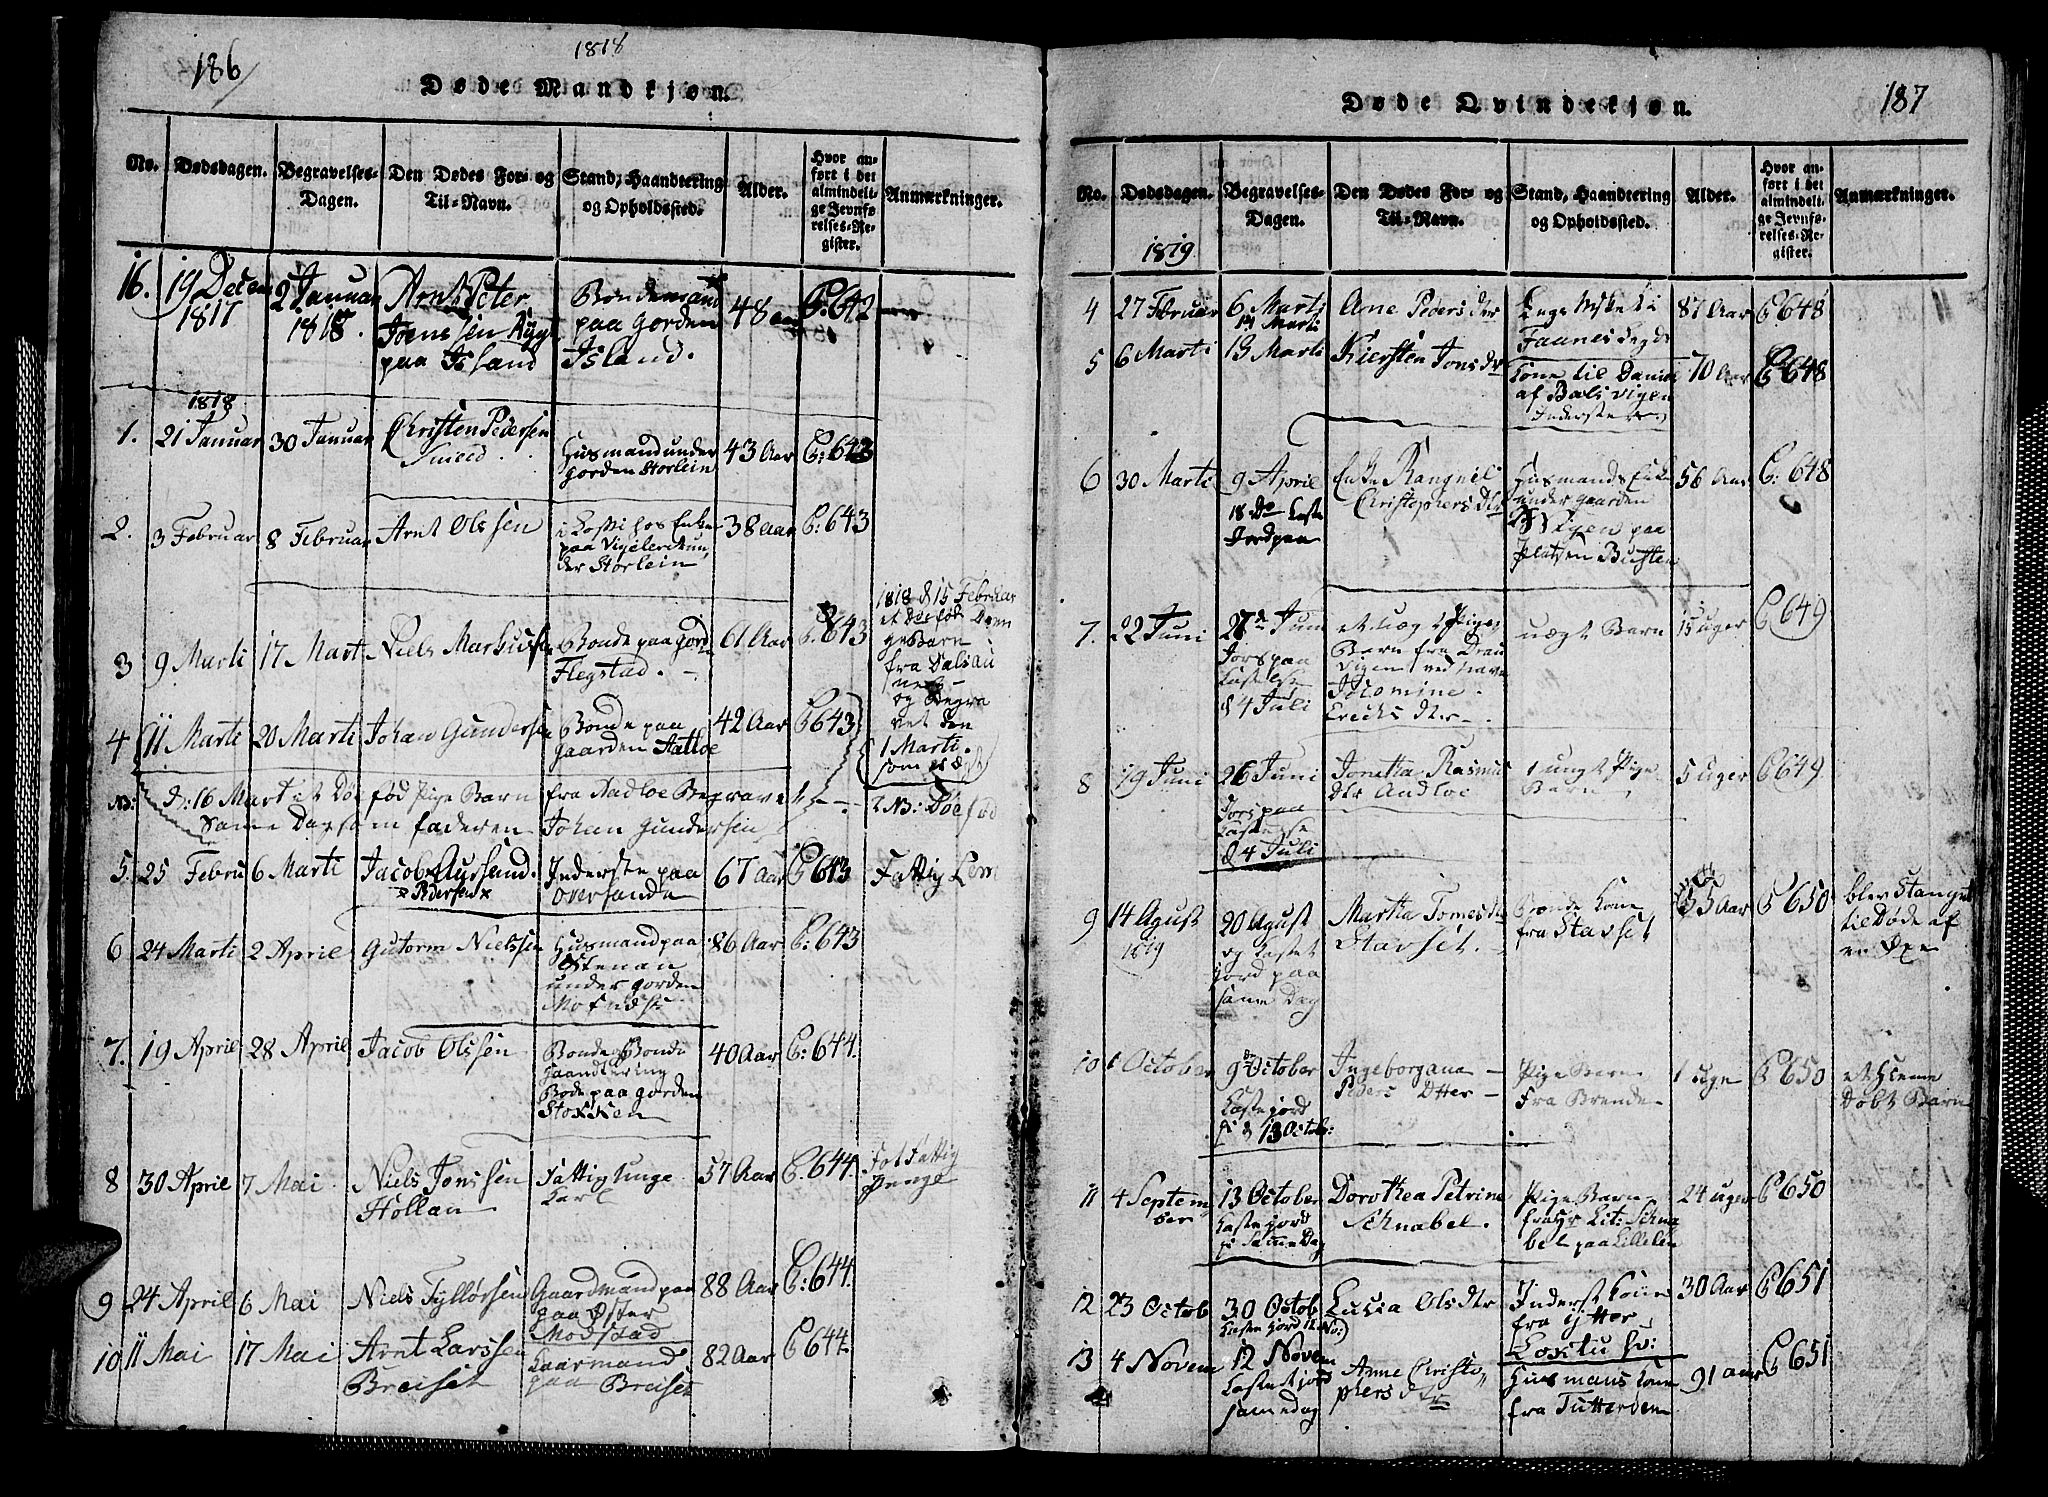 186
1818
Døde Mandkjøn.
No.
Dødsdagen.
Begravelses-
Dagen.
Den Dødes For- og
Til-Navn.
Stand, Haandtering
og Opholdssted.
Alder.
Hvor an-
ført i det
almindeli-
ge Jevnfø-
relses-Re-
gister.
Anmærkninger.
16.
19 Decem
1817
2 Januar
1818.
Arnt Peter
Jonssen
paa Island
Bondemand
paa Gorden
Island.
48 aar
P: 642
1818
1.
21 Januar
30 Januar
Christen Pedersen
Smed
Husmand under
gorden Storlein
43 Aar
P: 643
2.
3 Februar
8 Februar
Arnt Olssen
i Losti hos Enken
paa
der Storlein
38 Aar
P: 643
3
9 Marti
17 Mart
Niels Markussen
Bonde paa gord
Flegstad.
61 Aar
P. 643
1818 d 15 Februar
et Døefød Dren
ge Barn
fra
og Begra
vet den
1 Marti.
4
11 Marti
20 Marti
Johan Gundersen
Bonde paa
gaarden Aatloe
42 Aar
P 643
NB:
d: 16 Mart et Døe fød Pige Barn fra Aadloe Begravet
Same Dag som faderen Johan Gundersen
2 NB: Døe fød
5.
25 Febru
6 Marti
Jacob Aursund.
Pedersen
Inderste paa
oversanda
67 Aar
P 643
Fattig Lem
6
24 Marti
2 April
Gutorm Nielssen
Husmand paa
Østenan
under gorden
86 Aar
P: 643
7.
19 April
28 April
Jacob Olssen
Bonde Bonde
Haandtering
Bode paa gorden
Stokken
40 Aar
P: 644.
8
30 April
7 Mai
Niels Jonssen
Hollan
Fattig Unge
Karl
57 Aar
P. 644.
Fattig
Penge
9
24 April
6 Mai
Niels Tylløssen
Gaardmand paa
paa Øster
Modstad
88 Aar
P: 644.
10
11 Mai
17 Mai
Arnt Larssen
Breiset
Gaarmand
paa Breiset
82 Aar
P 644.
187
Døde Qvindekjøn.
No.
Dødsdagen.
Begravelses-
Dagen.
Den Dødes For- og
Til-Navn.
Stand, Haandtering
og Opholdssted.
Alder.
Hvor an-
ført i det
almindeli-
ge Jevnfø-
relses-Re-
gister.
Anmærkninger.
1819
4
27 Februar
6 Marti
13 Marti
Ane Peders dtr
Faanes
87 Aar
P. 648
5
6 Marti
13 Marti
Kiersten Jons dtr
Kone til Daniel
af Bals vigen
Inderste
70 Aar
P 648
6
30 Marti
9 April
18 De kaste
Jord paa
Enke Rangnil
Christophers Dtr
Husmands Enke
under gaarden
Vigen paa
Platsen Busten
56 Aar
P: 648
7.
22 Juni
27de Juni
Jors paa
d 4 Juli
et uægt Pige
Barn fra Drau
vigen ved navn
Jecomine
Ericks dtr
uægt Barn
15 uger
P 649
8
19 Juni
26 Juni
Jors paa
d 4 Juli
Jonetta Rasmus
Dtr Andloe
1 ungt Pige
Barn
5 uger
P 649
9
14 Agust
1819
20 Agust
og kastet
jord paa
same Dag
Martha Tomesdtr
Stavset.
Bonde Kone
fra Stavset
55 Aar
P 650
blev Stanget
til Døde af
en Oxe
10
1 October
9de October
kaste jord
p: d 13 Octob:
Ingeborg ana
Peders Dtter
Pige Barn
Fra Brende
1 uge
P 650
et Hieme
Døbt Barn
11
4 Septem
ber
13 October
kaste jord
p: same Dag
Dorothea Petrine
Schnabel.
Pige Barn
fra Hr Lit: Schna
bel paa Lillelen
24 uger
P 650
12
23 Octob
30 Octob
kaste jord 12 No:
Lusia Ols dtr
Inderst Kone
fra ytter
Loxtu
30 Aar
P 651
13
4 Novem
12 Novem
kaste jord
same dag
Anne Christo
phers dtr
Husmans Kone
fra Tutterøen
91 aar
P 651